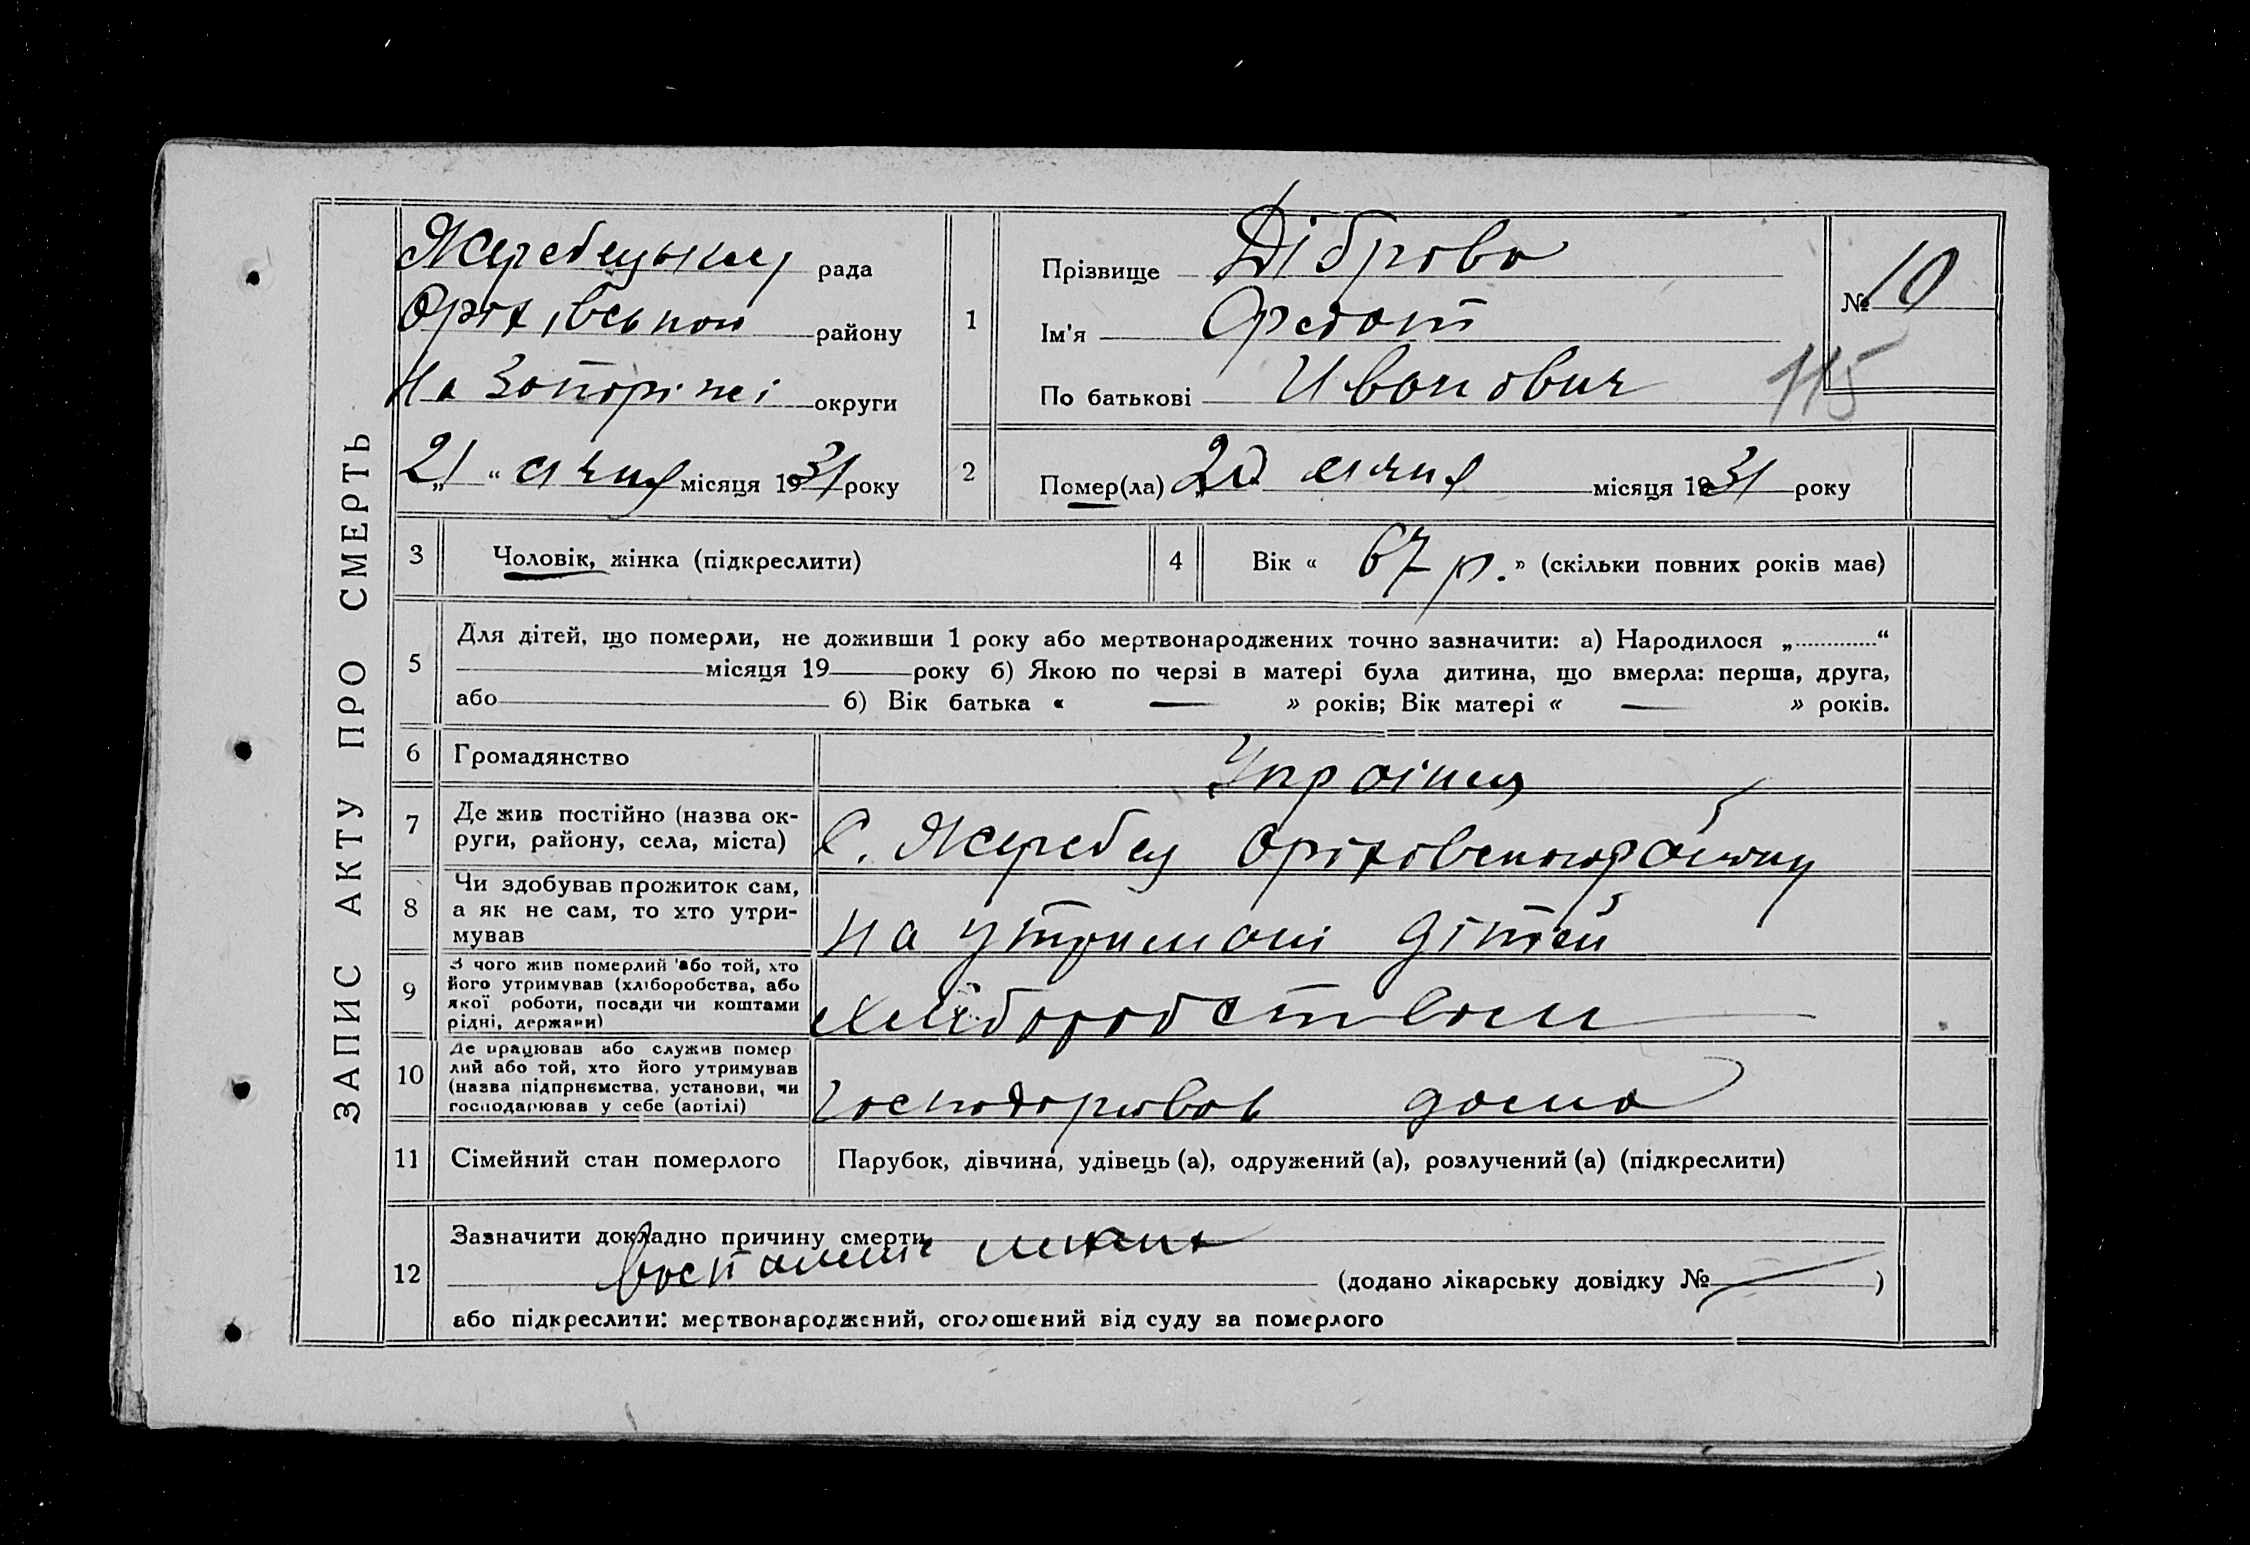 ЗАПИС АКТУ ПРО СМЕРТЬ
Жеребецький рада
Оріхівської району
На Запоріжі округи
„21“ січня місяця 1931 року
1
Прізвище Діброва
Ім'я
По батькові Иванович
№ 10
115
2 Помер(ла) „20“ січня місяця 1931 року
3 Чоловік, жінка (підкреслити)
4 Вік « 67 р. » (скільки повних років має)
5 Для дітей, що померли, не доживши 1 року або мертвонароджених точно зазначити: а) Народилося „............“
місяця 19 року б) Якою по черзі в матері була дитина, що вмерла: перша, друга,
або б) Вік батька « — » років; Вік матері « — » років.
6 Громадянство Українец
7 Де жив постійно (назва ок-
руги, району, села, міста) С. Жеребец Оріховского району
8 Чи здобував прожиток сам,
а як не сам, то хто утри-
мував На утримані дітей
9 З чого жив померлий або той, хто
його утримував (хліборобства, або
якої роботи, посади чи коштами
рідні, держави) хліборобством
10 Де працював або служив помер
лий або той, хто його утримував
(назва підприємства, установи, чи
господарював у себе (артілі) господарював дома
11 Сімейний стан померлого Парубок, дівчина, удівець (а), одружений (а), розлучений (а) (підкреслити)
12 Зазначити докладно причину смерти
воспаленіе легких (додано лікарську довідку № )
або підкреслити: мертвонароджений, оголошений від суду за померлого